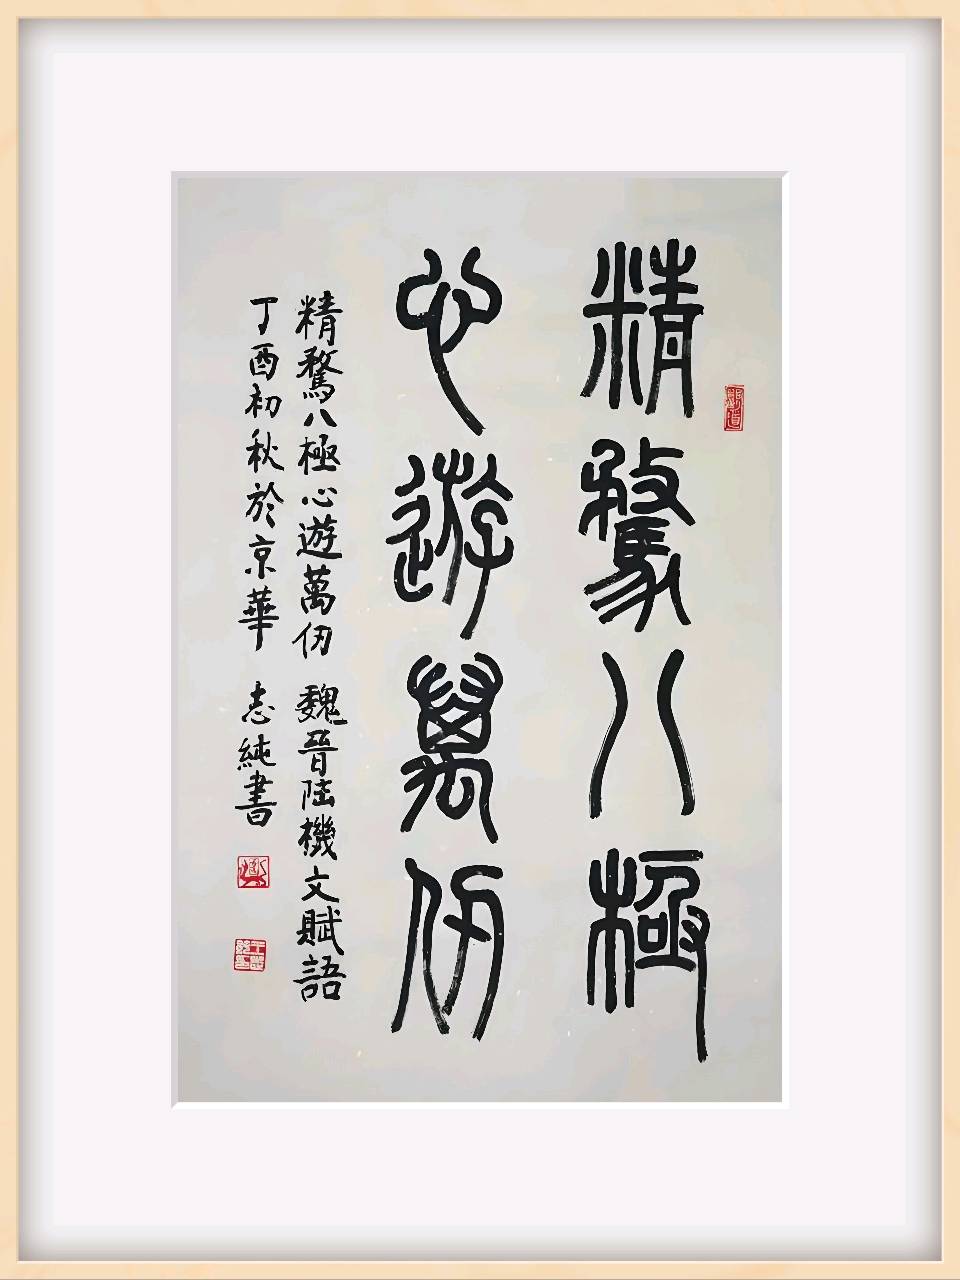 精騖八極
心遊萬仞
精騖八極心遊萬仞 魏晉陸機文賦語
丁酉初秋於京華 志純書